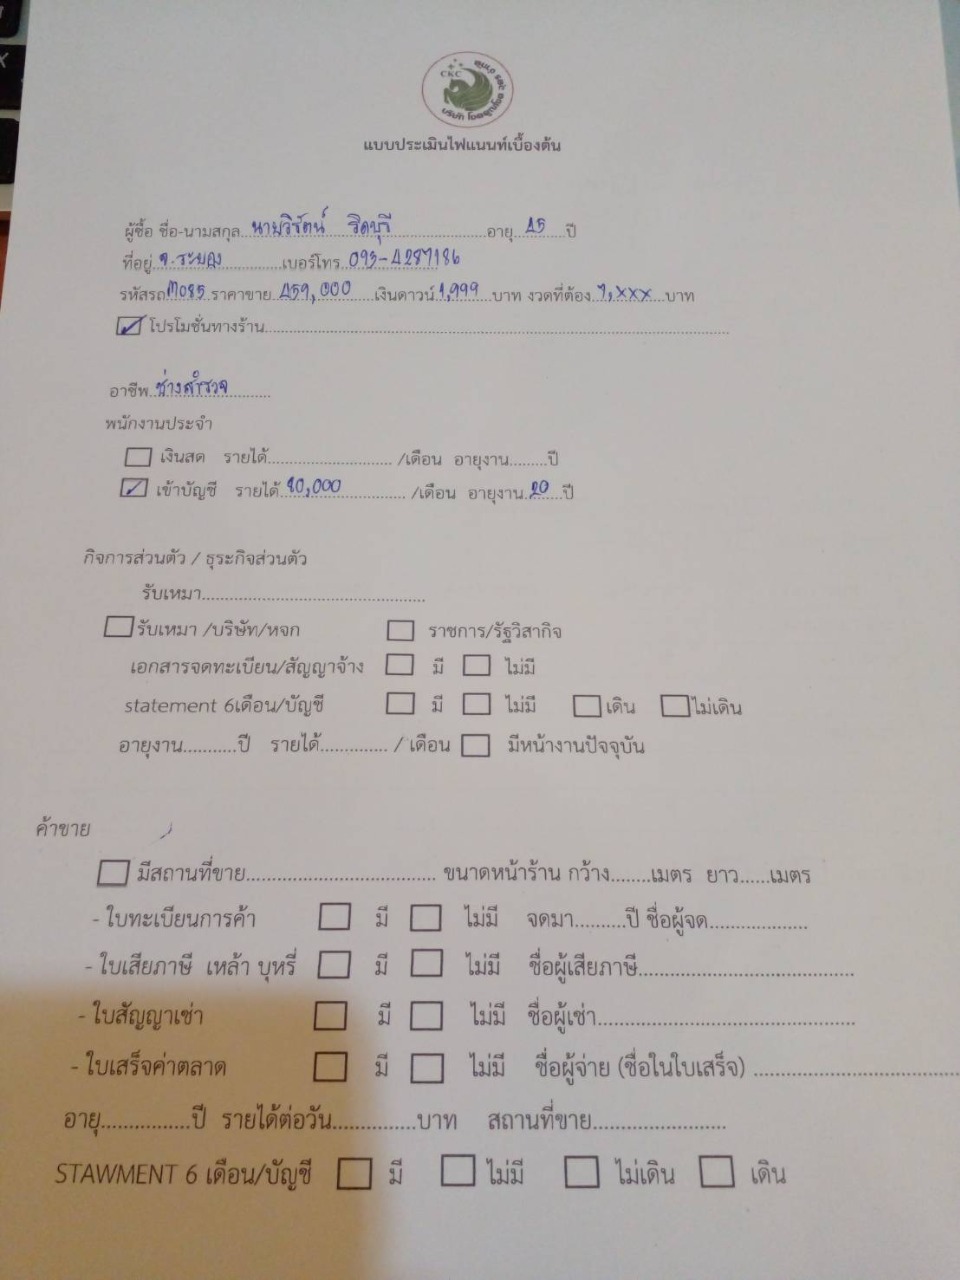 CKC
แบบประเมินไฟแนนท์เบื้องต้น
ผู้ซื้อ ชื่อ-นามสกุล..นายวิรัตน์ ริดบุรี..อายุ..45..ปี
ที่อยู่ จ.ระยอง..เบอร์โทร 093-4287186
รหัสรถ M085 ราคาขาย 459,000 เงินดาวน์ 1,999 บาท งวดที่ต้อง 7,xxx บาท
โปรโมชั่นทางร้าน
อาชีพ ช่างสำรวจ
พนักงานประจำ
เงินสด รายได้........../เดือน อายุงาน.........ปี
เข้าบัญชี รายได้ 80,000 /เดือน อายุงาน 20 ปี
กิจการส่วนตัว / ธุระกิจส่วนตัว
รับเหมา..........
รับเหมา /บริษัท/หจก ราชการ/รัฐวิสากิจ
เอกสารจดทะเบียน/สัญญาจ้าง มี ไม่มี
statement 6เดือน/บัญชี มี ไม่มี เดิน ไม่เดิน
อายุงาน...........ปี รายได้.............. / เดือน มีหน้างานปัจจุบัน
ค้าขาย
มีสถานที่ขาย.......... ขนาดหน้าร้าน กว้าง........เมตร ยาว......เมตร
- ใบทะเบียนการค้า มี ไม่มี จดมา..........ปี ชื่อผู้จด..........
- ใบเสียภาษี เหล้า บุหรี่ มี ไม่มี ชื่อผู้เสียภาษี..........
- ใบสัญญาเช่า มี ไม่มี ชื่อผู้เช่า..........
- ใบเสร็จค่าตลาด มี ไม่มี ชื่อผู้จ่าย (ชื่อในใบเสร็จ) ..........
อายุ................ปี รายได้ต่อวัน...............บาท สถานที่ขาย..........
STAWMENT 6 เดือน/บัญชี มี ไม่มี ไม่เดิน เดิน